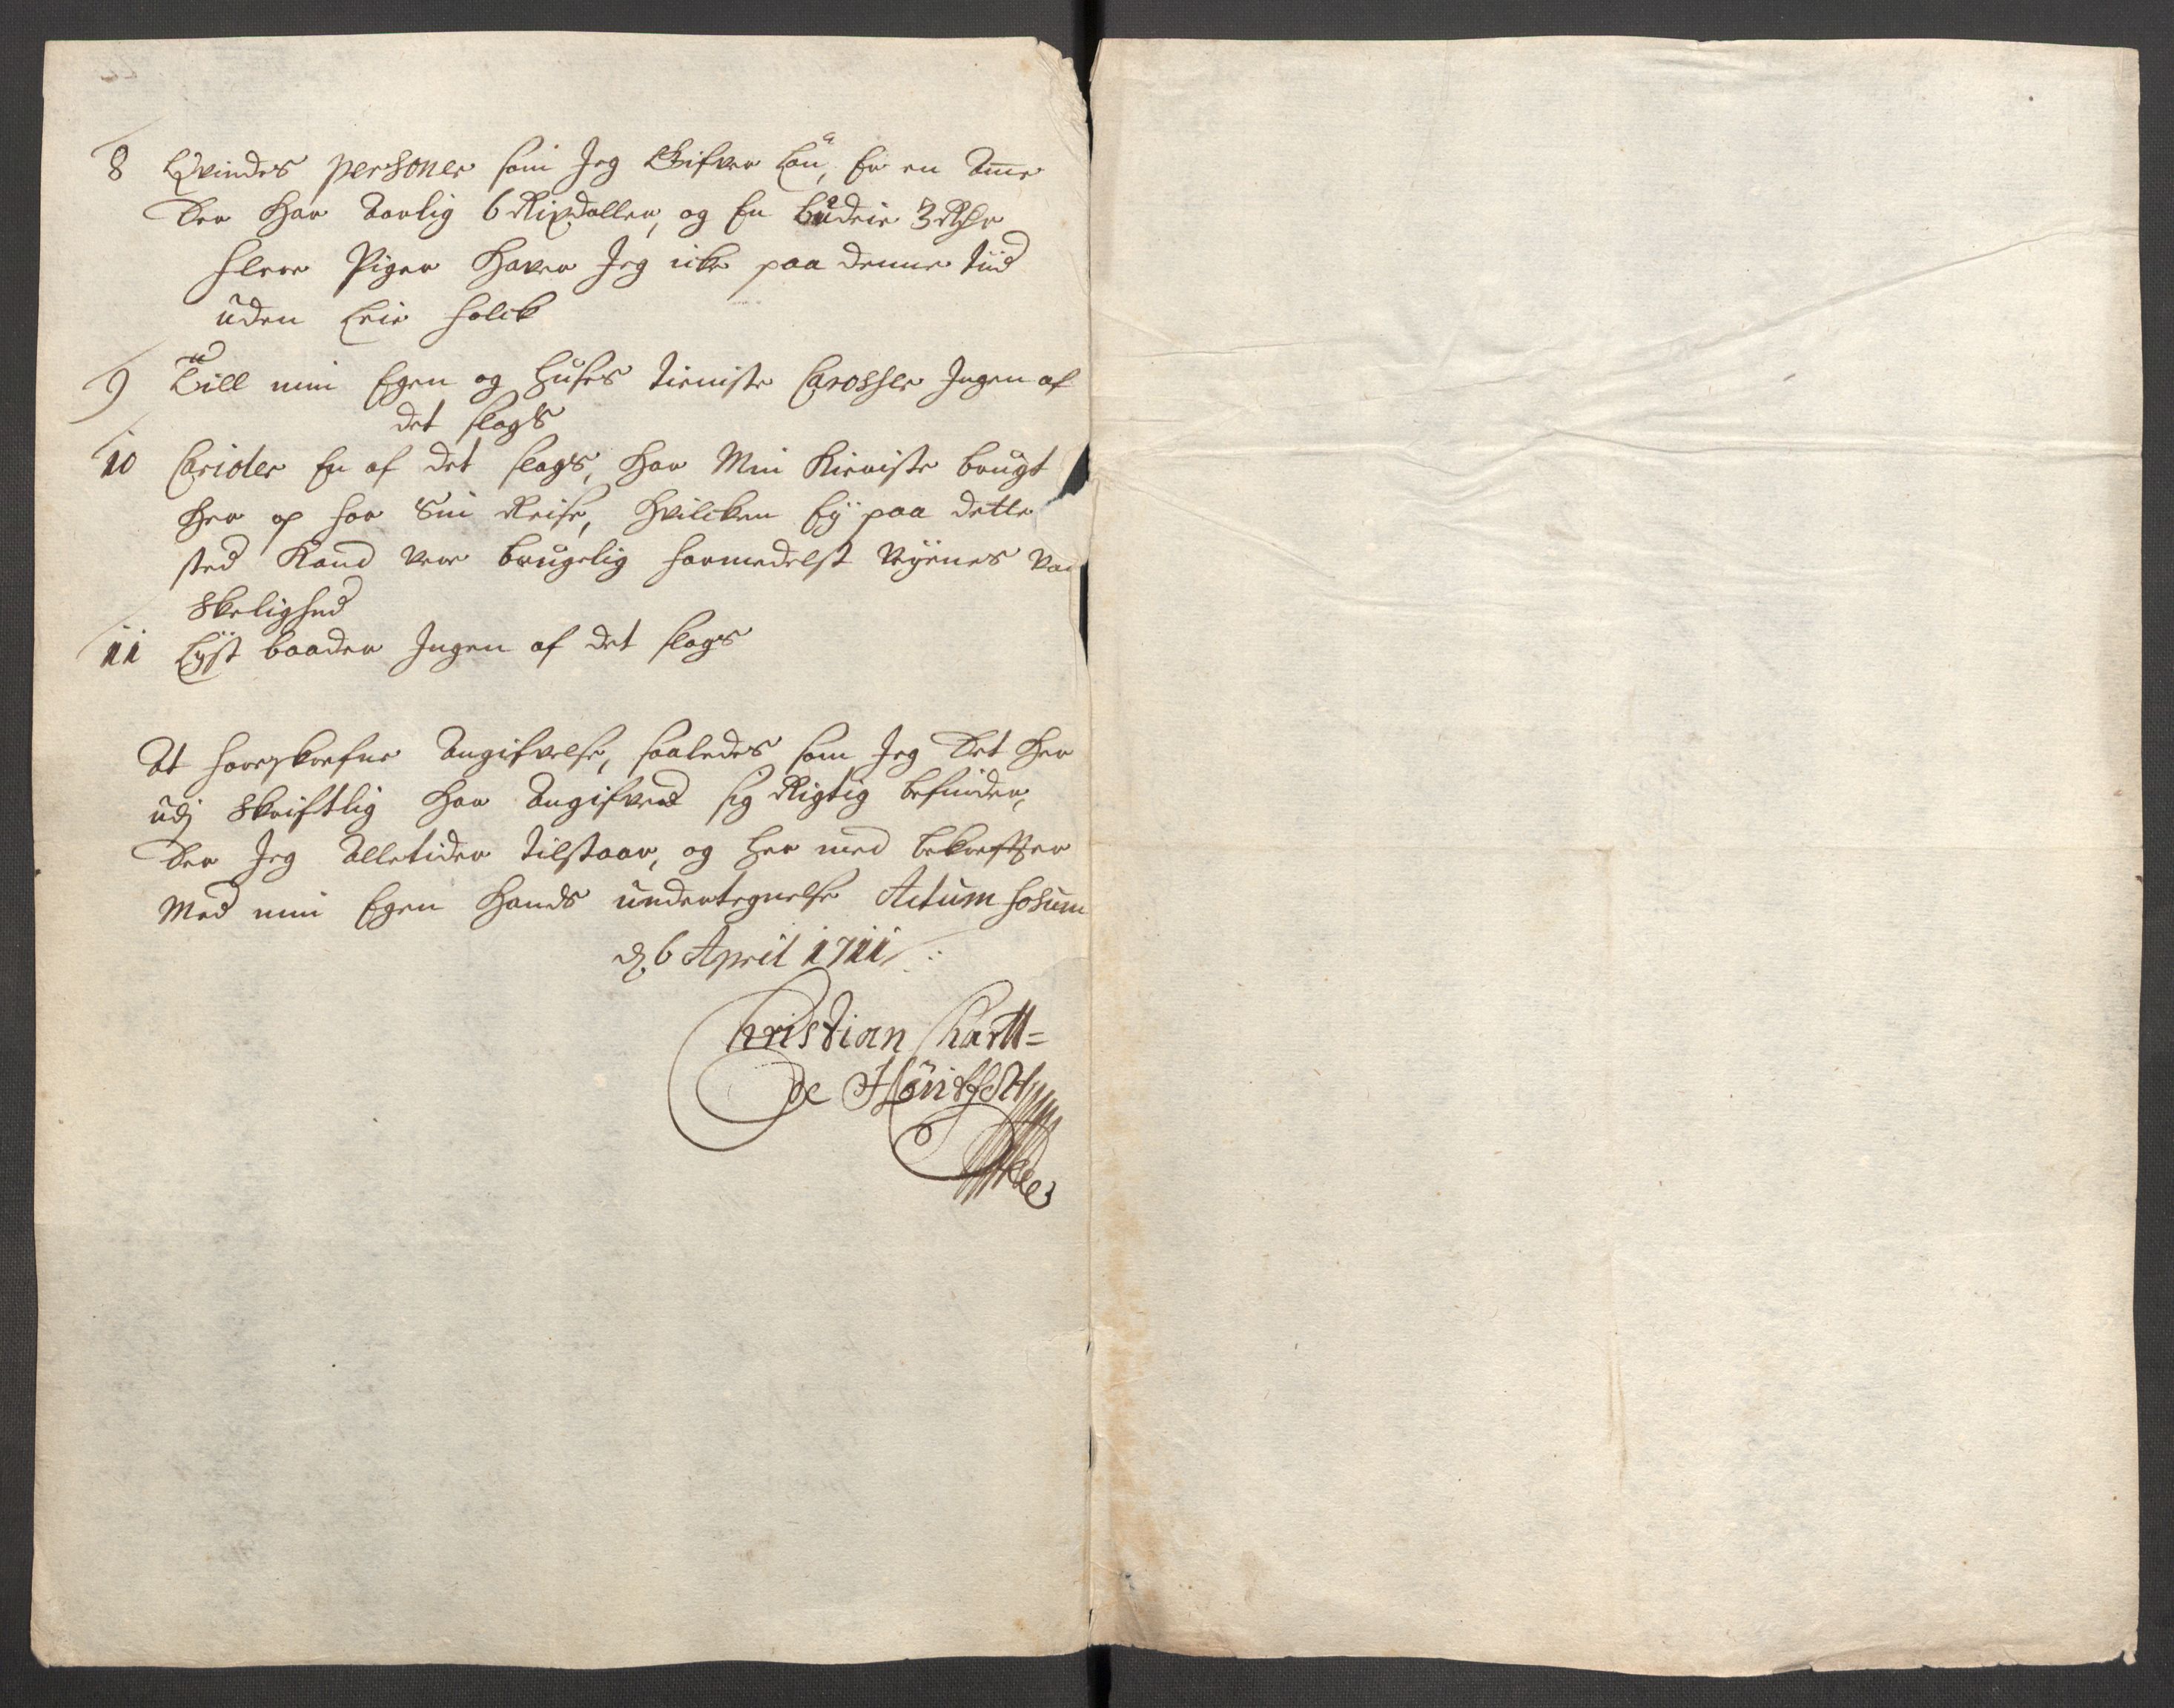 8 Qvindes personer som Jeg Gifver Løn, Er en Amme
der Har Aarlig 6 Rixdaller, og En budeie 3 Rdlr
flere Piger Haver Jeg icke paa denne tiid
uden Leie folck
9 Till min Egen og Huses tieniste Carosser Ingen af
det slags
10 Carioler En af det slags, Har Min Kieriste brugt
Her op for Sin Reise, Hvilcken Ey paa dette
sted Kand vere brugelig formedelst Vejenes van
skelighed
11 Lyst baader Ingen af det slags
At foreskrefne Angifvelse, saaledes som Jeg det Her
udj Skriftlig Har Angifved sig Rigtig befinder,
der Jeg Alletider tilstaar, og Her med bekrefter
Med min Egen Hands undertegnelse Actum Hosum
d. 6 April 1711
Christian Charll=
de